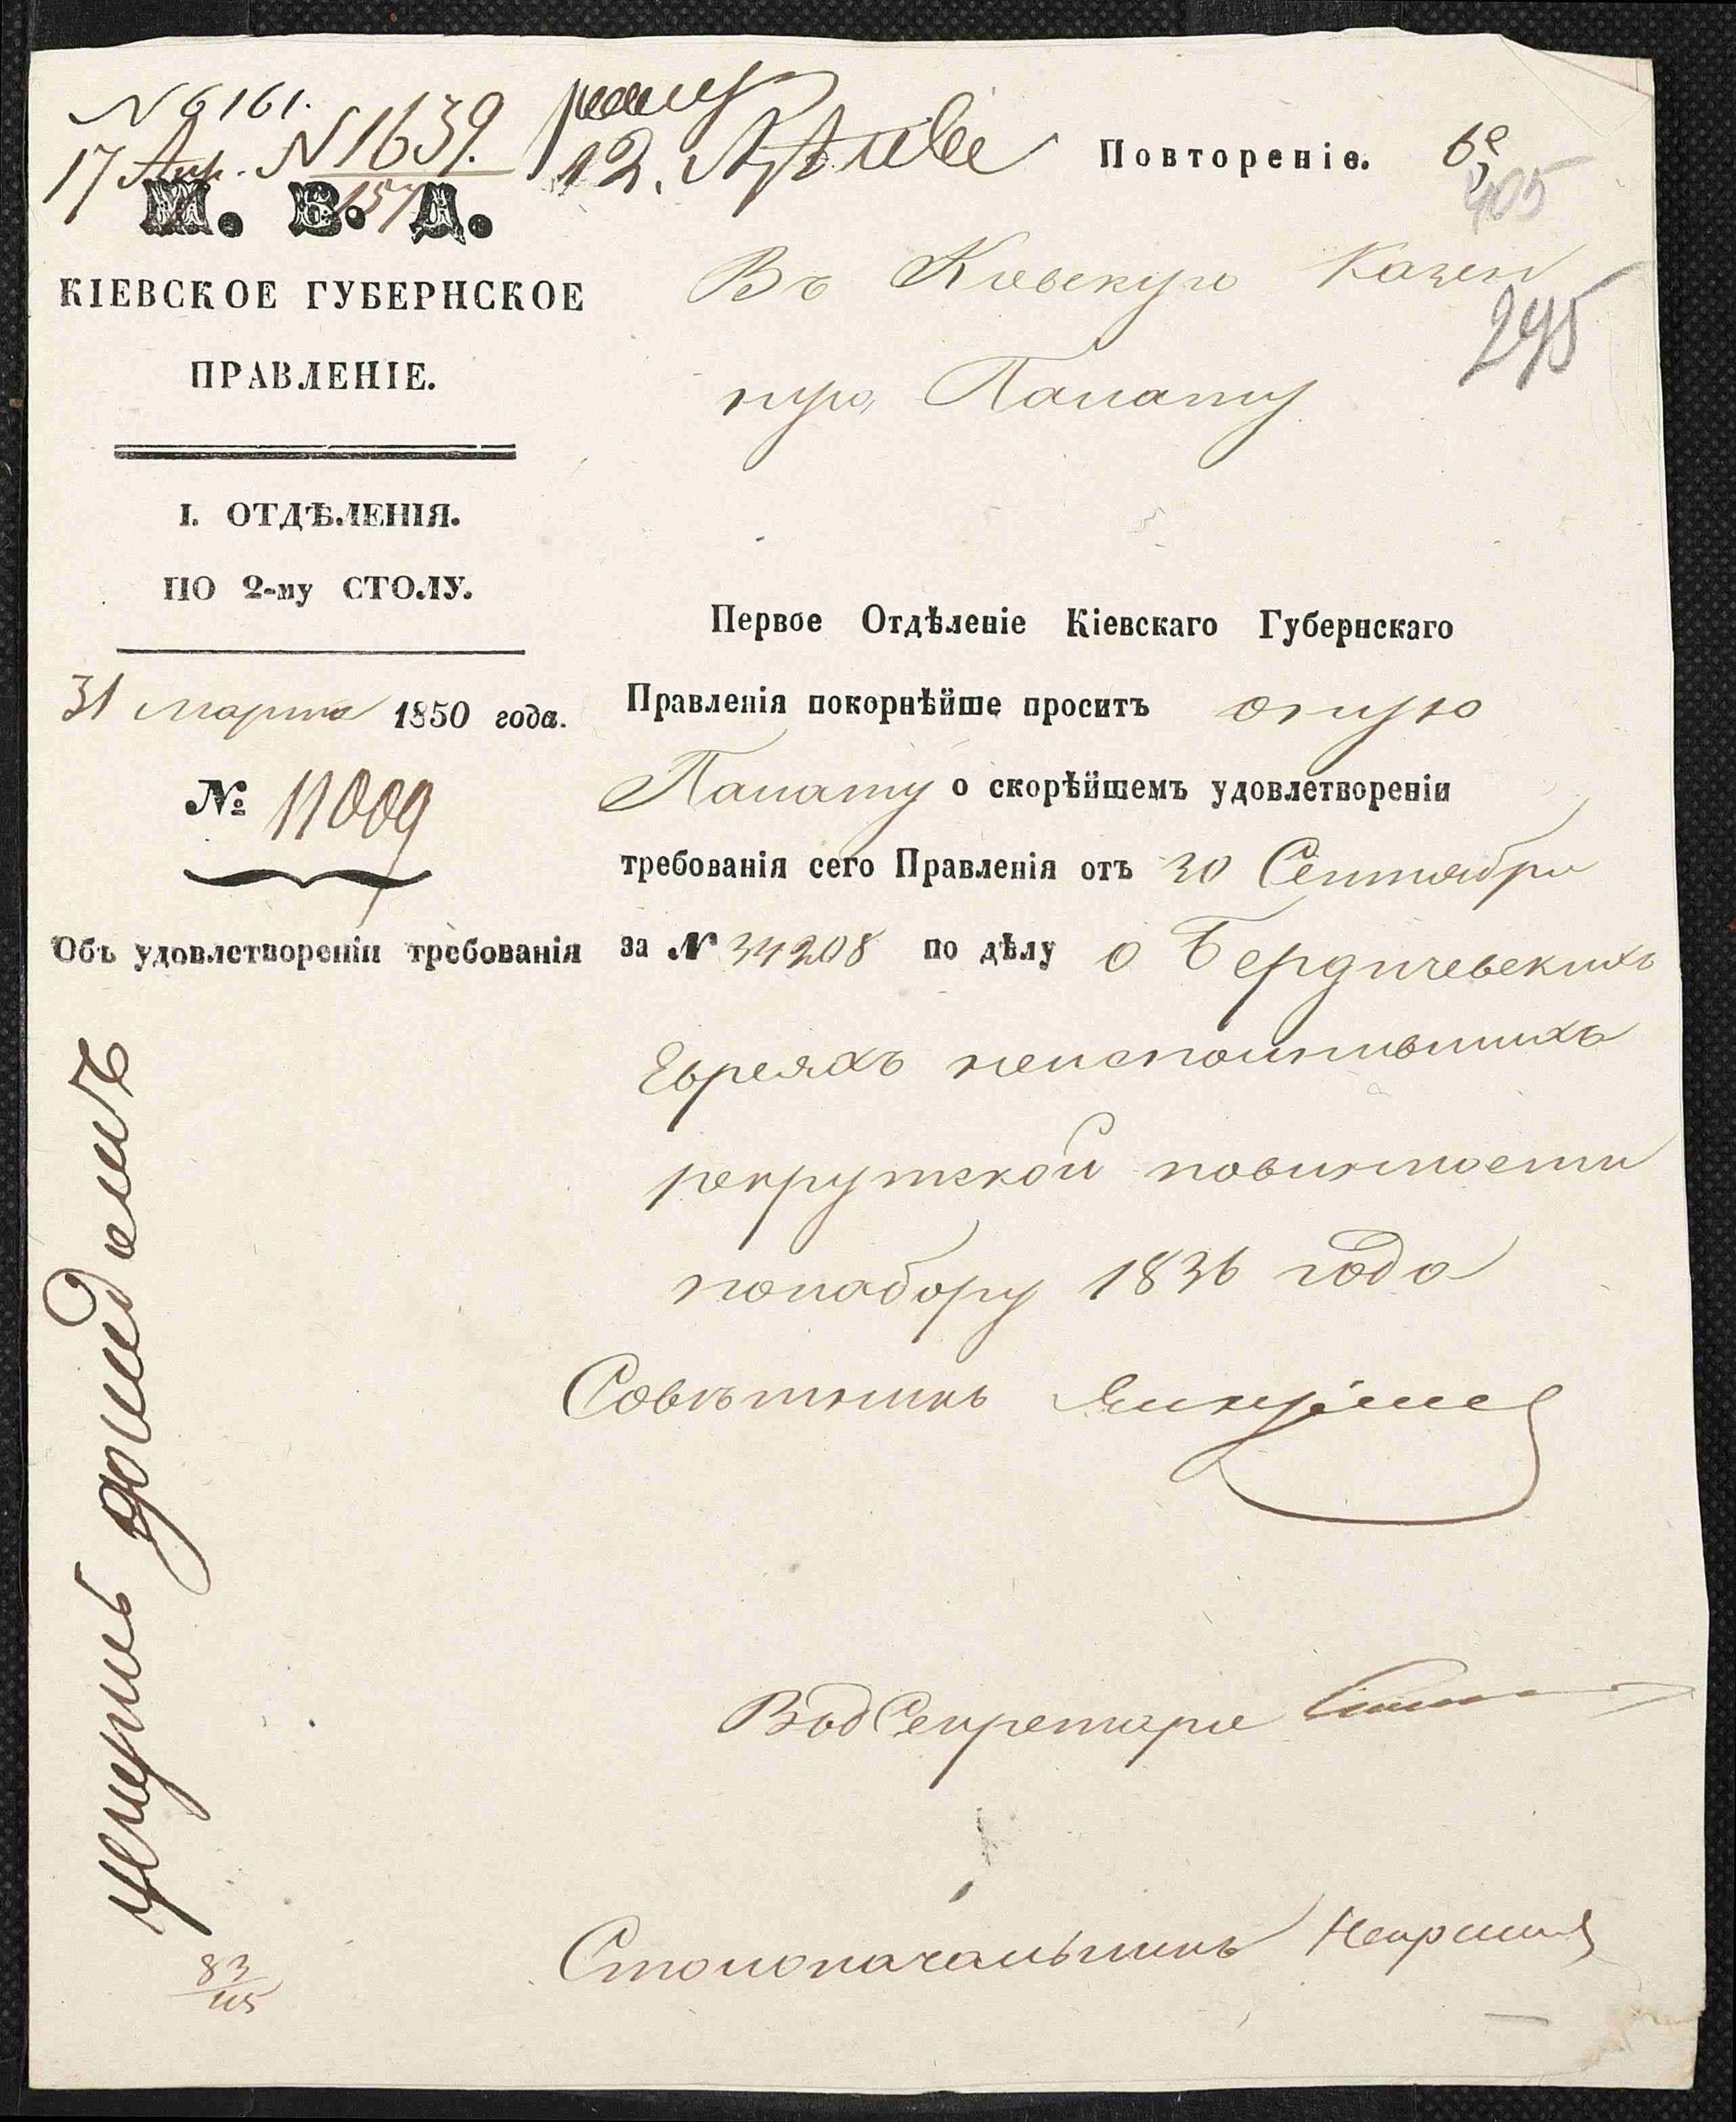 N 6161.
17 Апр. N 1639.
157
12. Апреля
Повтореніе. 6е
405
М. В. Д.
КІЕВСКОЕ ГУБЕРНСКОЕ
ПРАВЛЕНІЕ.
I. ОТДѢЛЕНІЯ.
ПО 2-му СТОЛУ.
31 марта 1850 года.
№ 11009
Объ удовлетвореніи требованія
Въ Кіевскую Казен
295
ную Палату
Первое Отдѣленіе Кіевскаго Губернскаго
Правленія покорнѣйше проситъ оную
Палату о скорѣйшемъ удовлетвореніи
требованія сего Правленія отъ 30 Сентября
за № 34208 по дѣлу о Бердичевскихъ
Евреяхъ неисполнившихъ
рекрутской повинности
понабору 1836 года
Совѣтникъ
Секретаря
Столоначальникъ
83
115